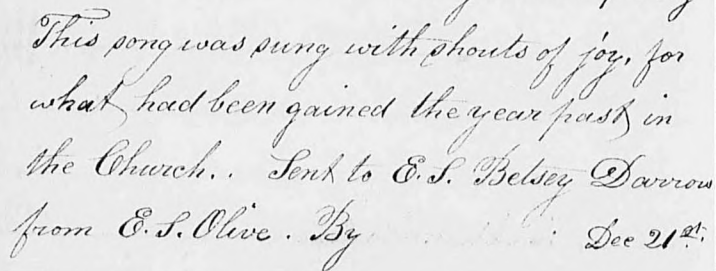 This song was sung with shouts of joy, for
what had been gained the year past in
the Church.. Sent to E. S. Betsey Darrow
from E. S. Olive. By Dec 21st.